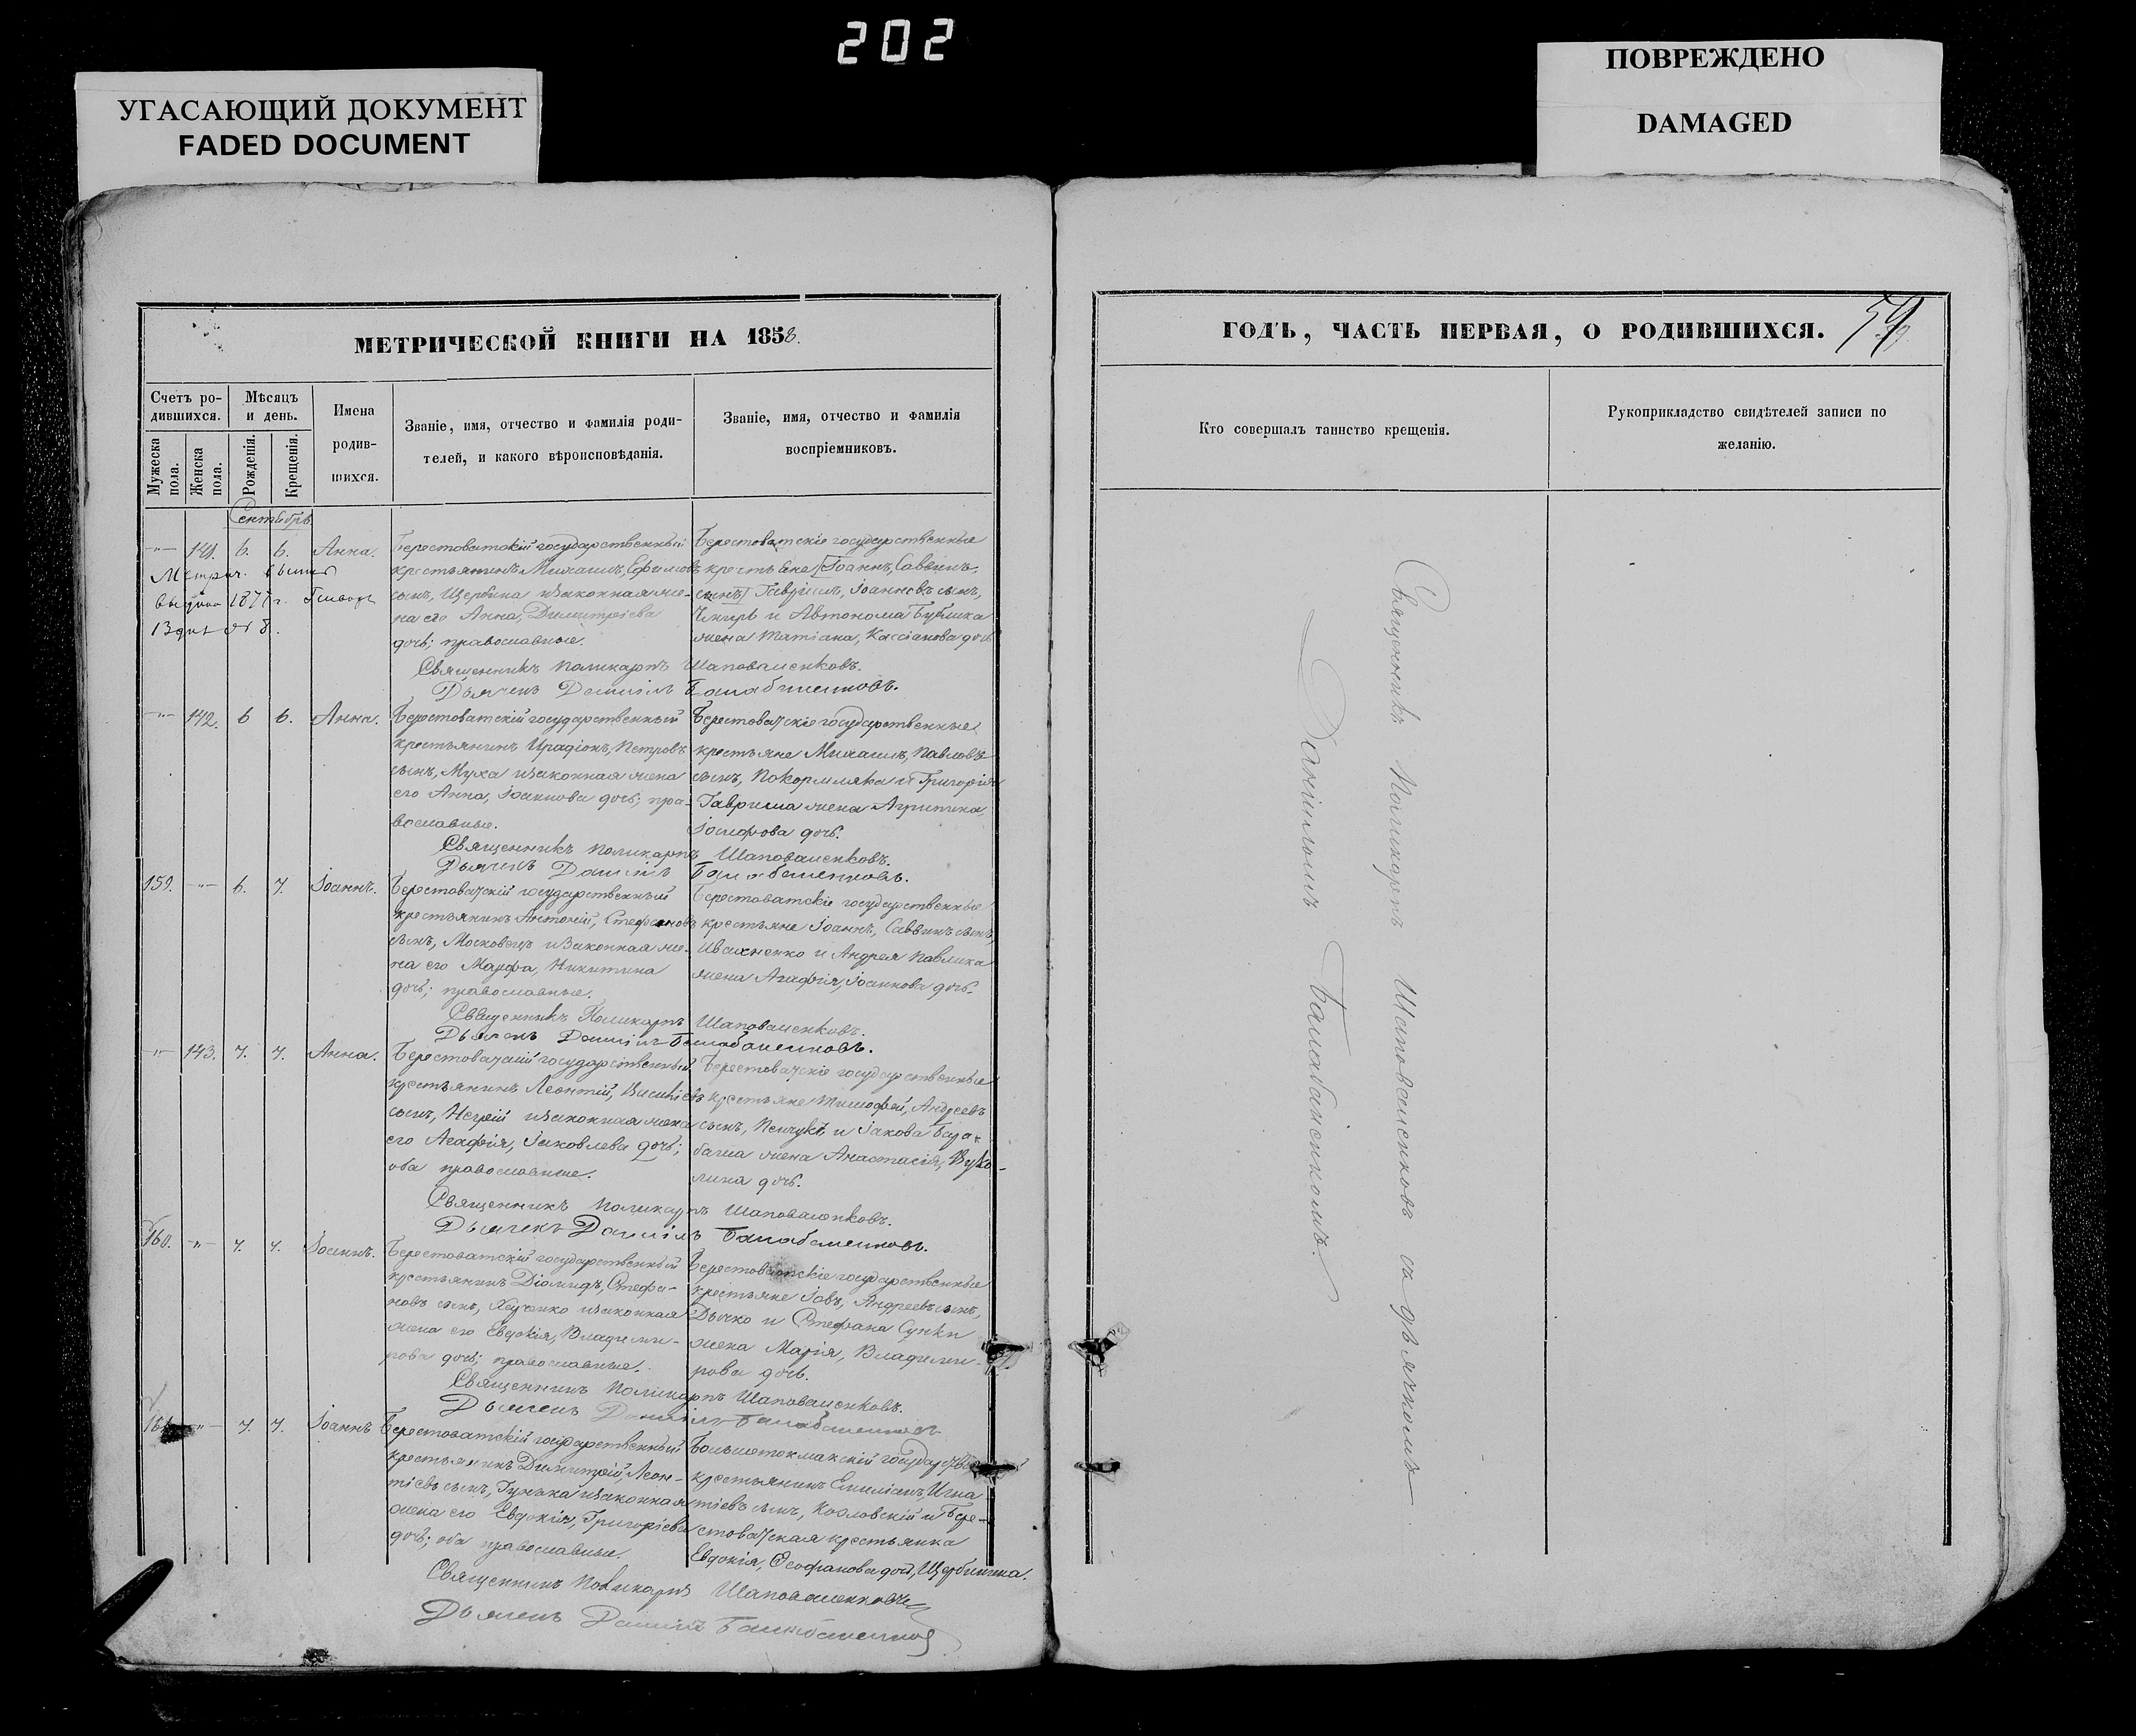 202
УГАСАЮЩИЙ ДОКУМЕНТ
FADED DOCUMENT
ПОВРЕЖДЕНО
DAMAGED
МЕТРИЧЕСКОЙ КНИГИ НА 1858.
Счетъ ро-
дившихся.
Мѣсяцъ
и день.
Имена
родив-
шихся.
Званіе, имя, отчество и фамилія роди-
телей, и какого вѣроисповѣданія.
Званіе, имя, отчество и фамилія
воспріемниковъ.
Мужеска
пола.
Женска
пола.
Рожденія.
Крещенія.
Сентябрь
141. 6. 6. Анна.
Берестоватскій государственный
крестьянинъ Михаилъ, Ефимовъ
сынъ, Щербина и законная же-
на его Анна, Димитріева
дочь; православные.
Берестоватскіе государственные
крестьяне I Іоаннъ, Саввинъ
сынъ II Гавріилъ, Іоанновъ сынъ,
и Автонома Бублика
жена Татіана, Кассіанова дочь
Священникъ Поликарпъ Шаповаленковъ.
Дьячекъ Даніилъ Балабаненковъ.
142. 6 6. Анна.
Берестоватскій государственный
крестьянинъ Иродіонъ, Петровъ
сынъ, Муха и законная жена
его Анна, Іоаннова дочь; пра-
вославные.
Берестоватскіе государственные
крестьяне Михаилъ, Павловъ
сынъ, Покормляка и Григорія
Гавриша жена Агрипина,
Іосифова дочь.
Священникъ Поликарпъ Шаповаленковъ.
Дьячекъ Даніилъ Балабаненковъ.
159. 6. 7. Іоаннъ.
Берестоватскій государственный
крестьянинъ Антоній, Стефановъ
сынъ, Московецъ и законная же-
на его Марфа, Никитина
дочь; православные.
Берестоватскіе государственные
крестьяне Іоаннъ, Саввинъ сынъ,
Ивахненко и Андрея Павлика
жена Агафія, Іоаннова дочь.
Священникъ Поликарпъ Шаповаленковъ.
Дьячекъ Даніилъ Балабаненковъ.
143. 7. 7. Анна.
Берестоватскій государственный
крестьянинъ Леонтій, Василіевъ
сынъ, и законная жена
его Агафія, Іаковлева дочь;
оба православные.
Берестоватскіе государственные
крестьяне Тимофей, Андреевъ
сынъ, и Іакова Бара-
баша жена Анастасія, Вуко-
лина дочь.
Священникъ Поликарпъ Шаповаленковъ.
Дьячекъ Даніилъ Балабаненковъ.
160. 7. 7. Іоаннъ.
Берестоватскій государственный
крестьянинъ Діомидъ, Стефа-
новъ сынъ, и законная
жена его Евдокія, Владими-
рова дочь; православные.
Берестоватскіе государственные
крестьяне Іовъ, Андреевъ сынъ,
Дычко и Стефана
жена Марія, Владими-
рова дочь.
Священникъ Поликарпъ Шаповаленковъ.
Дьячекъ Даніилъ Балабаненковъ
161 7. 7. Іоаннъ
Берестоватскій государственный
крестьянинъ Димитрій, Леон-
тіевъ сынъ, Гунька и законная
жена его Евдокія, Григоріева
дочь; оба православные.
Большетокмакскій
крестьянинъ Емиліанъ, Игна
тіевъ сынъ, Козловскій и Бере-
стоватская крестьянка
Евдокія, Ѳеофанова дочь, Щербинина.
Священникъ Поликарпъ Шаповаленковъ
Дьячекъ Даніилъ Балабаненковъ
ГОДЪ, ЧАСТЬ ПЕРВАЯ, О РОДИВШИХСЯ.
59
Кто совершалъ таинство крещенія.
Рукоприкладство свидѣтелей записи по
желанію.
Священникъ Поликарпъ Шаповаленковъ съ дьячкомъ
Даніиломъ Балабаненкомъ.